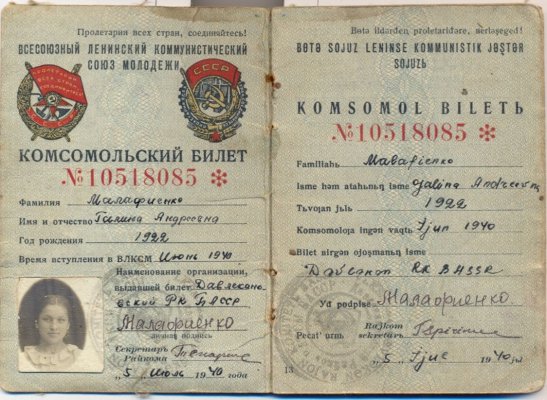 Пролетарии всех стран, соединяйтесь!
ВСЕСОЮЗНЫЙ ЛЕНИНСКИЙ КОММУНИСТИЧЕСКИЙ
СОЮЗ МОЛОДЕЖИ
СССР
КОМСОМОЛЬСКИЙ БИЛЕТ
№10518085 *
Фамилия Малафиенко
Имя и отчество Галина Андреевна
Год рождения 1922
Время вступления в ВЛКСМ Июнь 1940
Наименование организации,
выдавшей билет Давлекано-
вский РК БАССР
Малафиенко
личная подпись
Секретарь
Райкома
"5" Июль 1940 года
Bɵtɵ ildərden proletariđəre, berləşeged!
BƟTƟ SOJUZ LENINSE KOMMUNISTIK JƏŞTƏR
SOJUZЬ
KOMSOMOL BILETЬ
№10518085 *
Familiahь Malafienko
Isme həm atahьnьꞑ isme Galina Andreevna
Tьvojan jьlь 1922
Komsomolоja ingən vaqtь Ijun 1940
Bilet birgən ojoşmanьꞑ isme
RK BASSR
Yd podpise Малафиенко
Pecat' urnь
Rajkom
sekretarь
"5" Ijul 1940 jьl
13